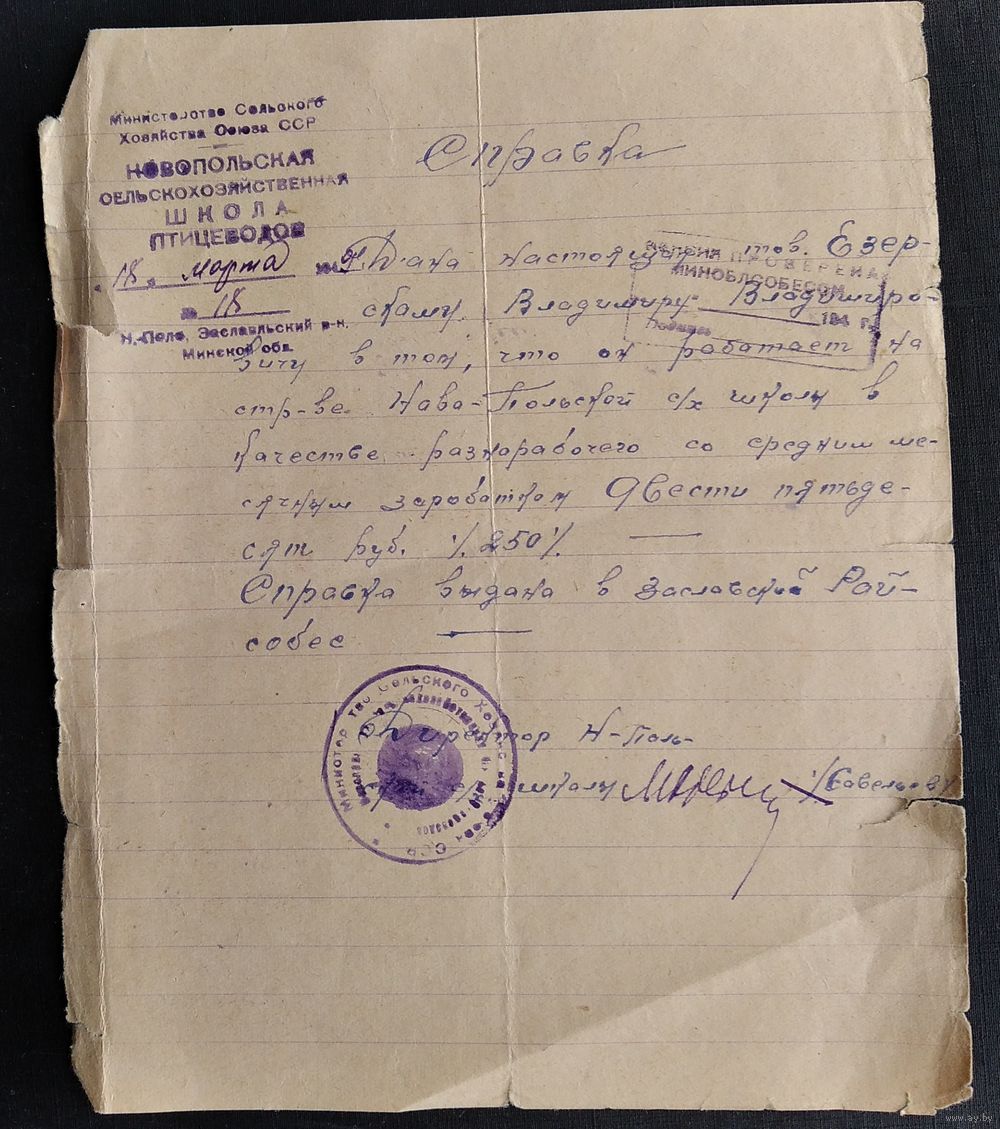 Министерство Сельского
Хозяйства Союза ССР
НОВОПОЛЬСКАЯ
СЕЛЬСКОХОЗЯЙСТВЕННАЯ
ШКОЛА
ПТИЦЕВОДОВ
"18" марта 194 г.
№ 18
Н.-Поле, Заславльский р-н,
Минской обл.
Справка
Дана настоящая тов. Езер-
скому Владимиру Владимиро-
вичу в том, что он работает на
стр-ве Ново-Польской с/х школы в
качестве разнорабочего со средним ме-
сячным заработком Двести пятьде-
сят руб. /. 250 /.
Справка выдана в Заславский Рай-
собес
ПРОВЕРЕНА
МИНОБЛСОБЕСОМ
194 г.
Подпись
Директор Н-Поль-
ской с/х школы /Савельев/
Министерство Сельского Хозяйства ССР
www.ay.by